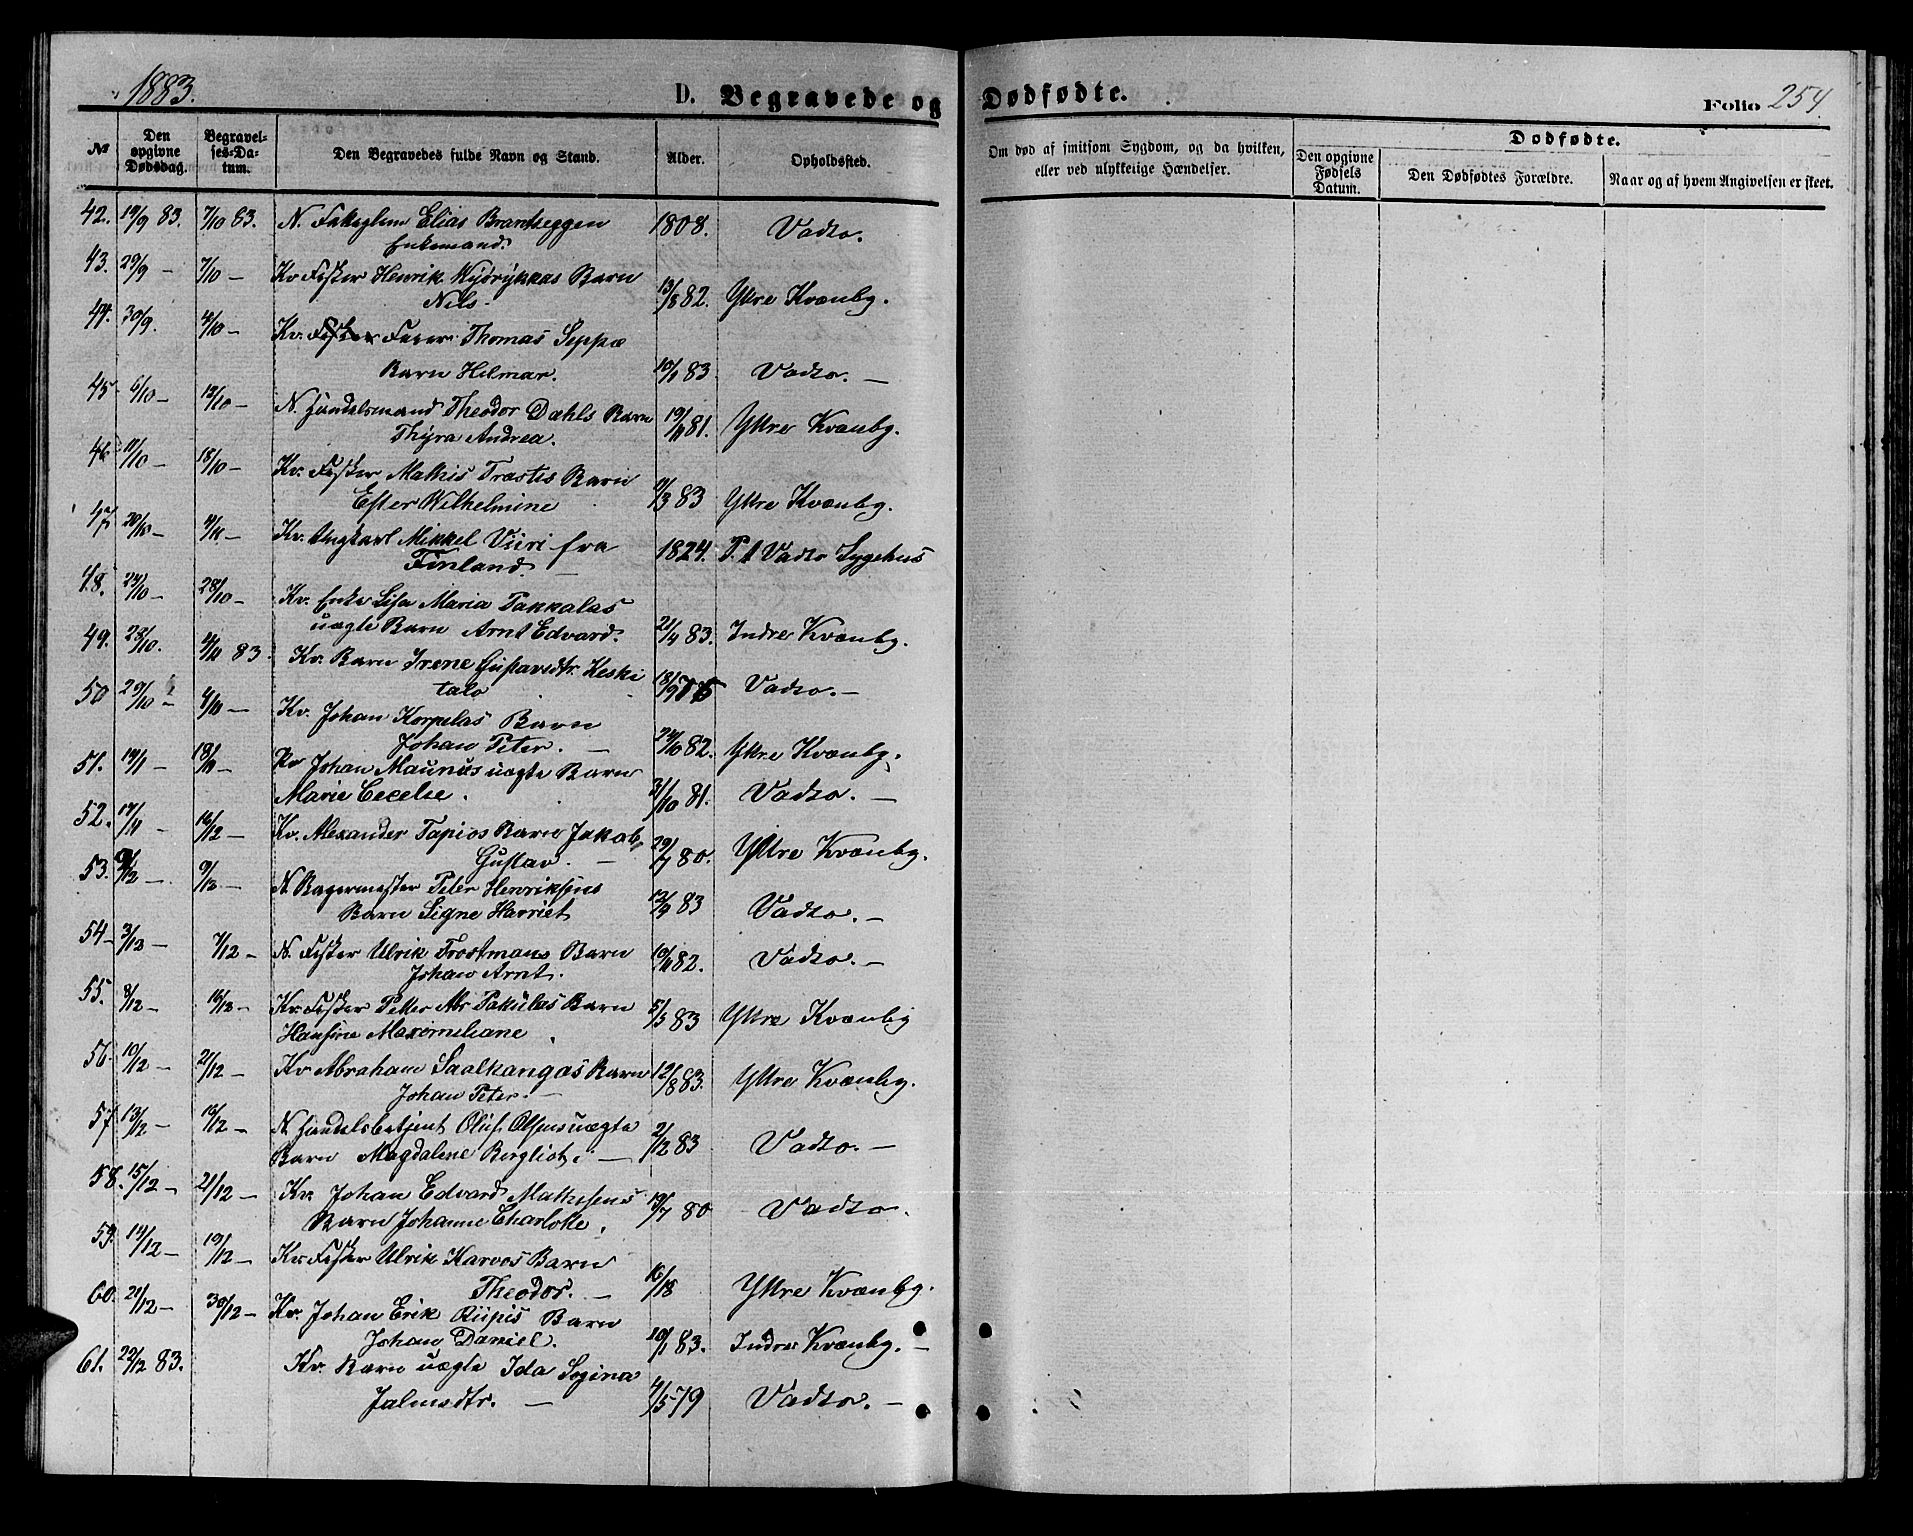 1883.
D. Begravede og Dødfødte.
Folio 254.
№
Den opgivne Dødsdag.
Begravelses-Datum.
Den Begravedes fulde Navn og Stand.
Alder.
Opholdssted.
Om død af smitsom Sygdom, og da hvilken, eller ved ulykkelige Hændelser.
Dødfødte.
Den opgivne Fødsels Datum.
Den Dødfødtes Forældre.
Naar og af hvem Angivelsen er skeet.
42. 19/9 83. 7/10 83. N. Elias Brantseggen 1808. Vadsø.
Enkemand.
43. 29/9 — 7/10 — Kv. Fisker Henrik Barn
Nils. 13/8 82. Yttre Kvænbg.
44. 30/9. 4/10 — Kv. Fisker Thomas Seppæ
Barn Hilmar. 10/1 83 Vadsø. —
45. 6/10 — 13/10 — N. Handelsmand Theodor Dahls Barn
Thyra Andrea. 19/11 81. Yttre Kvænbg.
46. 11/10 — 18/10 — Kv. Fisker Mathis Træstis Barn
Ester Wilhelmine 11/3 83 Yttre Kvænbg.
47. 20/10 — 4/11 — Kv. Ungkarl Mikkel Viiri fra 1824. P. t Vadsø Sygehus
Finland. —
48. 24/10 — 28/10 — Kv. Enke Lisa Maria Takkalas
uægte Barn Arnt Edvard. 21/4 83. Indre Kvænbg.
49. 28/10. 4/11 83. Kv. Barn Irene Gustavsdtr. Keski
talo 18/9 Vadsø. —
50 29/10 — 4/11 — Kv. Johan Korpelas Barn
Johan Peter. — 24/10 82. Yttre Kvænbg.
51. 14/11 18/11 — Kv Johan Maunus uægte Barn
Marie Cecelie. 31/10 81. Vadsø. —
52. 17/11 — 16/12 — Kv. Alexander Tapios Barn Jakob
Gustav. — 29/7 80. Yttre Kvænbg.
53. /12 — 9/12 — N. Bagermester Peter Henriksens
Barn Signe Harriet 12/9 83 Vadsø. —
54 — 3/12 — 7/12 — N. Fisker Ulrik Frostmans Barn
Johan Arnt. 10/11 82. Vadsø. —
55. 8/12 — 16/12 — Kv. Fisker Petter Abr Pakulas Barn
Hansine Maxemiliane. 5/3 83 Yttre Kvænbg
56. 10/12 — 21/12 — Kv Abraham Saalkangas Barn
Johan Peter. — 12/8 83. Yttre Kvænbg.
57. 13/12 — 18/12 — N. Handelsbetjent Oluf Olsens uægte
Barn Magdalene Bergliot. — 2/12 83 Vadsø. —
58. 15/12 — 21/12 — Kv. Johan Edvard Mathisens
Barn Johanne Charlotte. 19/7 80 Vadsø.
59. 14/12 — 19/12 — Kv. Fisker Ulrik Karvos Barn
Theodor. — 16/18 Yttre Kvænbg.
60. 21/12 — 30/12 — Kv. Johan Erik Riipis Barn
Johan Daniel. 10/1 83. Indre Kvænbg. —
61. 22/12 83. Kv. Barn uægte Ida Regina
Jalmsdtr. — 4/5 79 Vadsø. —